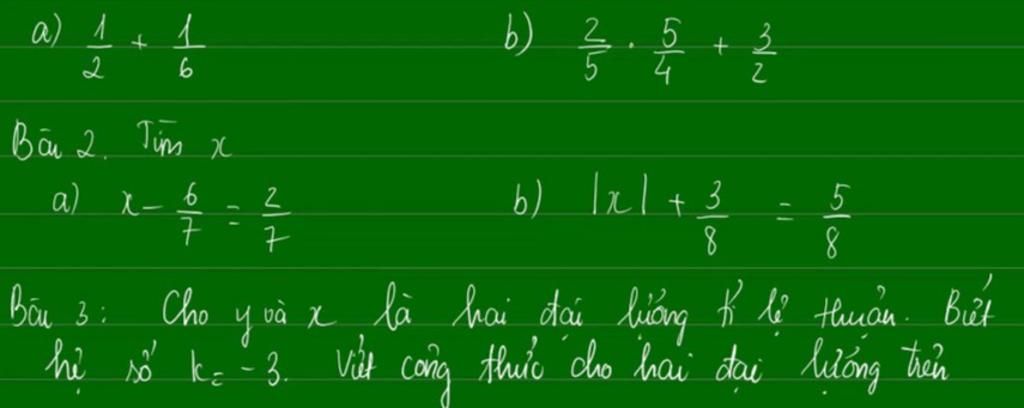 a) 1/2 + 1/6 b) 2/5 . 5/4 + 3/2
Bài 2. Tìm x
a) x - 6/7 = 2/7 b) |x| + 3/8 = 5/8
Bài 3: Cho y và x là hai đại lượng tỉ lệ thuận. Biết
hệ số k = -3. Viết công thức cho hai đại lượng trên